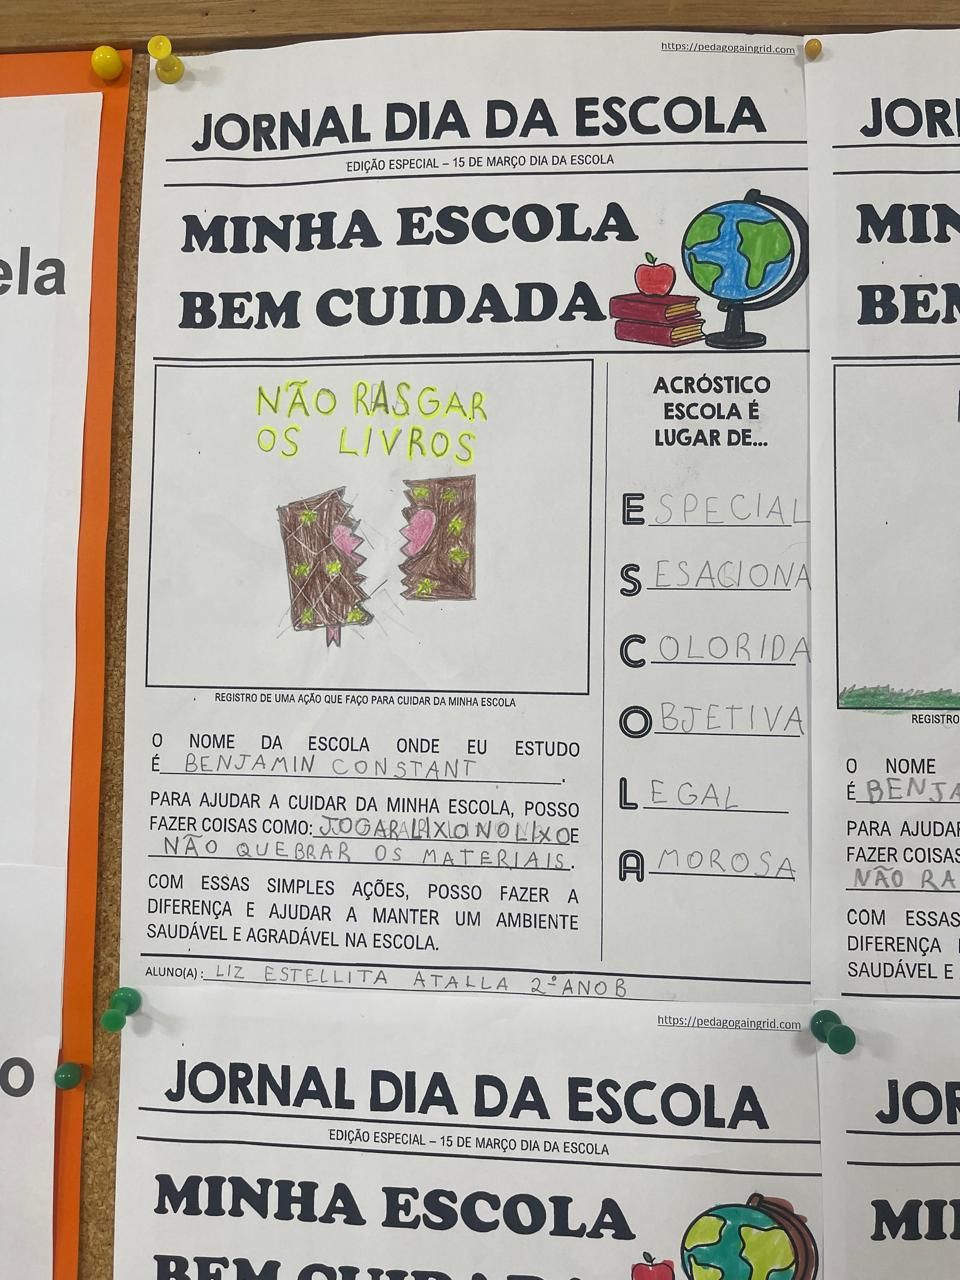 https://pedagogaingrid.com
JORNAL DIA DA ESCOLA
EDIÇÃO ESPECIAL – 15 DE MARÇO DIA DA ESCOLA
MINHA ESCOLA
BEM CUIDADA
NÃO RASGAR
OS LIVROS
REGISTRO DE UMA AÇÃO QUE FAÇO PARA CUIDAR DA MINHA ESCOLA
ACRÓSTICO
ESCOLA É
LUGAR DE...
ESPECIAL
SESACIONA
COLORIDA
OBJETIVA
LEGAL
AMOROSA
O NOME DA ESCOLA ONDE EU ESTUDO
É BENJAMIN CONSTANT.
PARA AJUDAR A CUIDAR DA MINHA ESCOLA, POSSO
FAZER COISAS COMO: JOGAR LIXO NO LIXO E
NÃO QUEBRAR OS MATERIAIS.
COM ESSAS SIMPLES AÇÕES, POSSO FAZER A
DIFERENÇA E AJUDAR A MANTER UM AMBIENTE
SAUDÁVEL E AGRADÁVEL NA ESCOLA.
ALUNO(A): LIZ ESTELLITA ATALLA 2º ANO B
https://pedagogaingrid.com
JORNAL DIA DA ESCOLA
EDIÇÃO ESPECIAL – 15 DE MARÇO DIA DA ESCOLA
MINHA ESCOLA
BEM CUIDADA
ela
o
JOR
MIN
BEM
REGISTRO
O NOME
É BENJA
PARA AJUDAR
FAZER COISAS
NÃO RA
COM ESSAS
DIFERENÇA E
SAUDÁVEL E
JO
MI